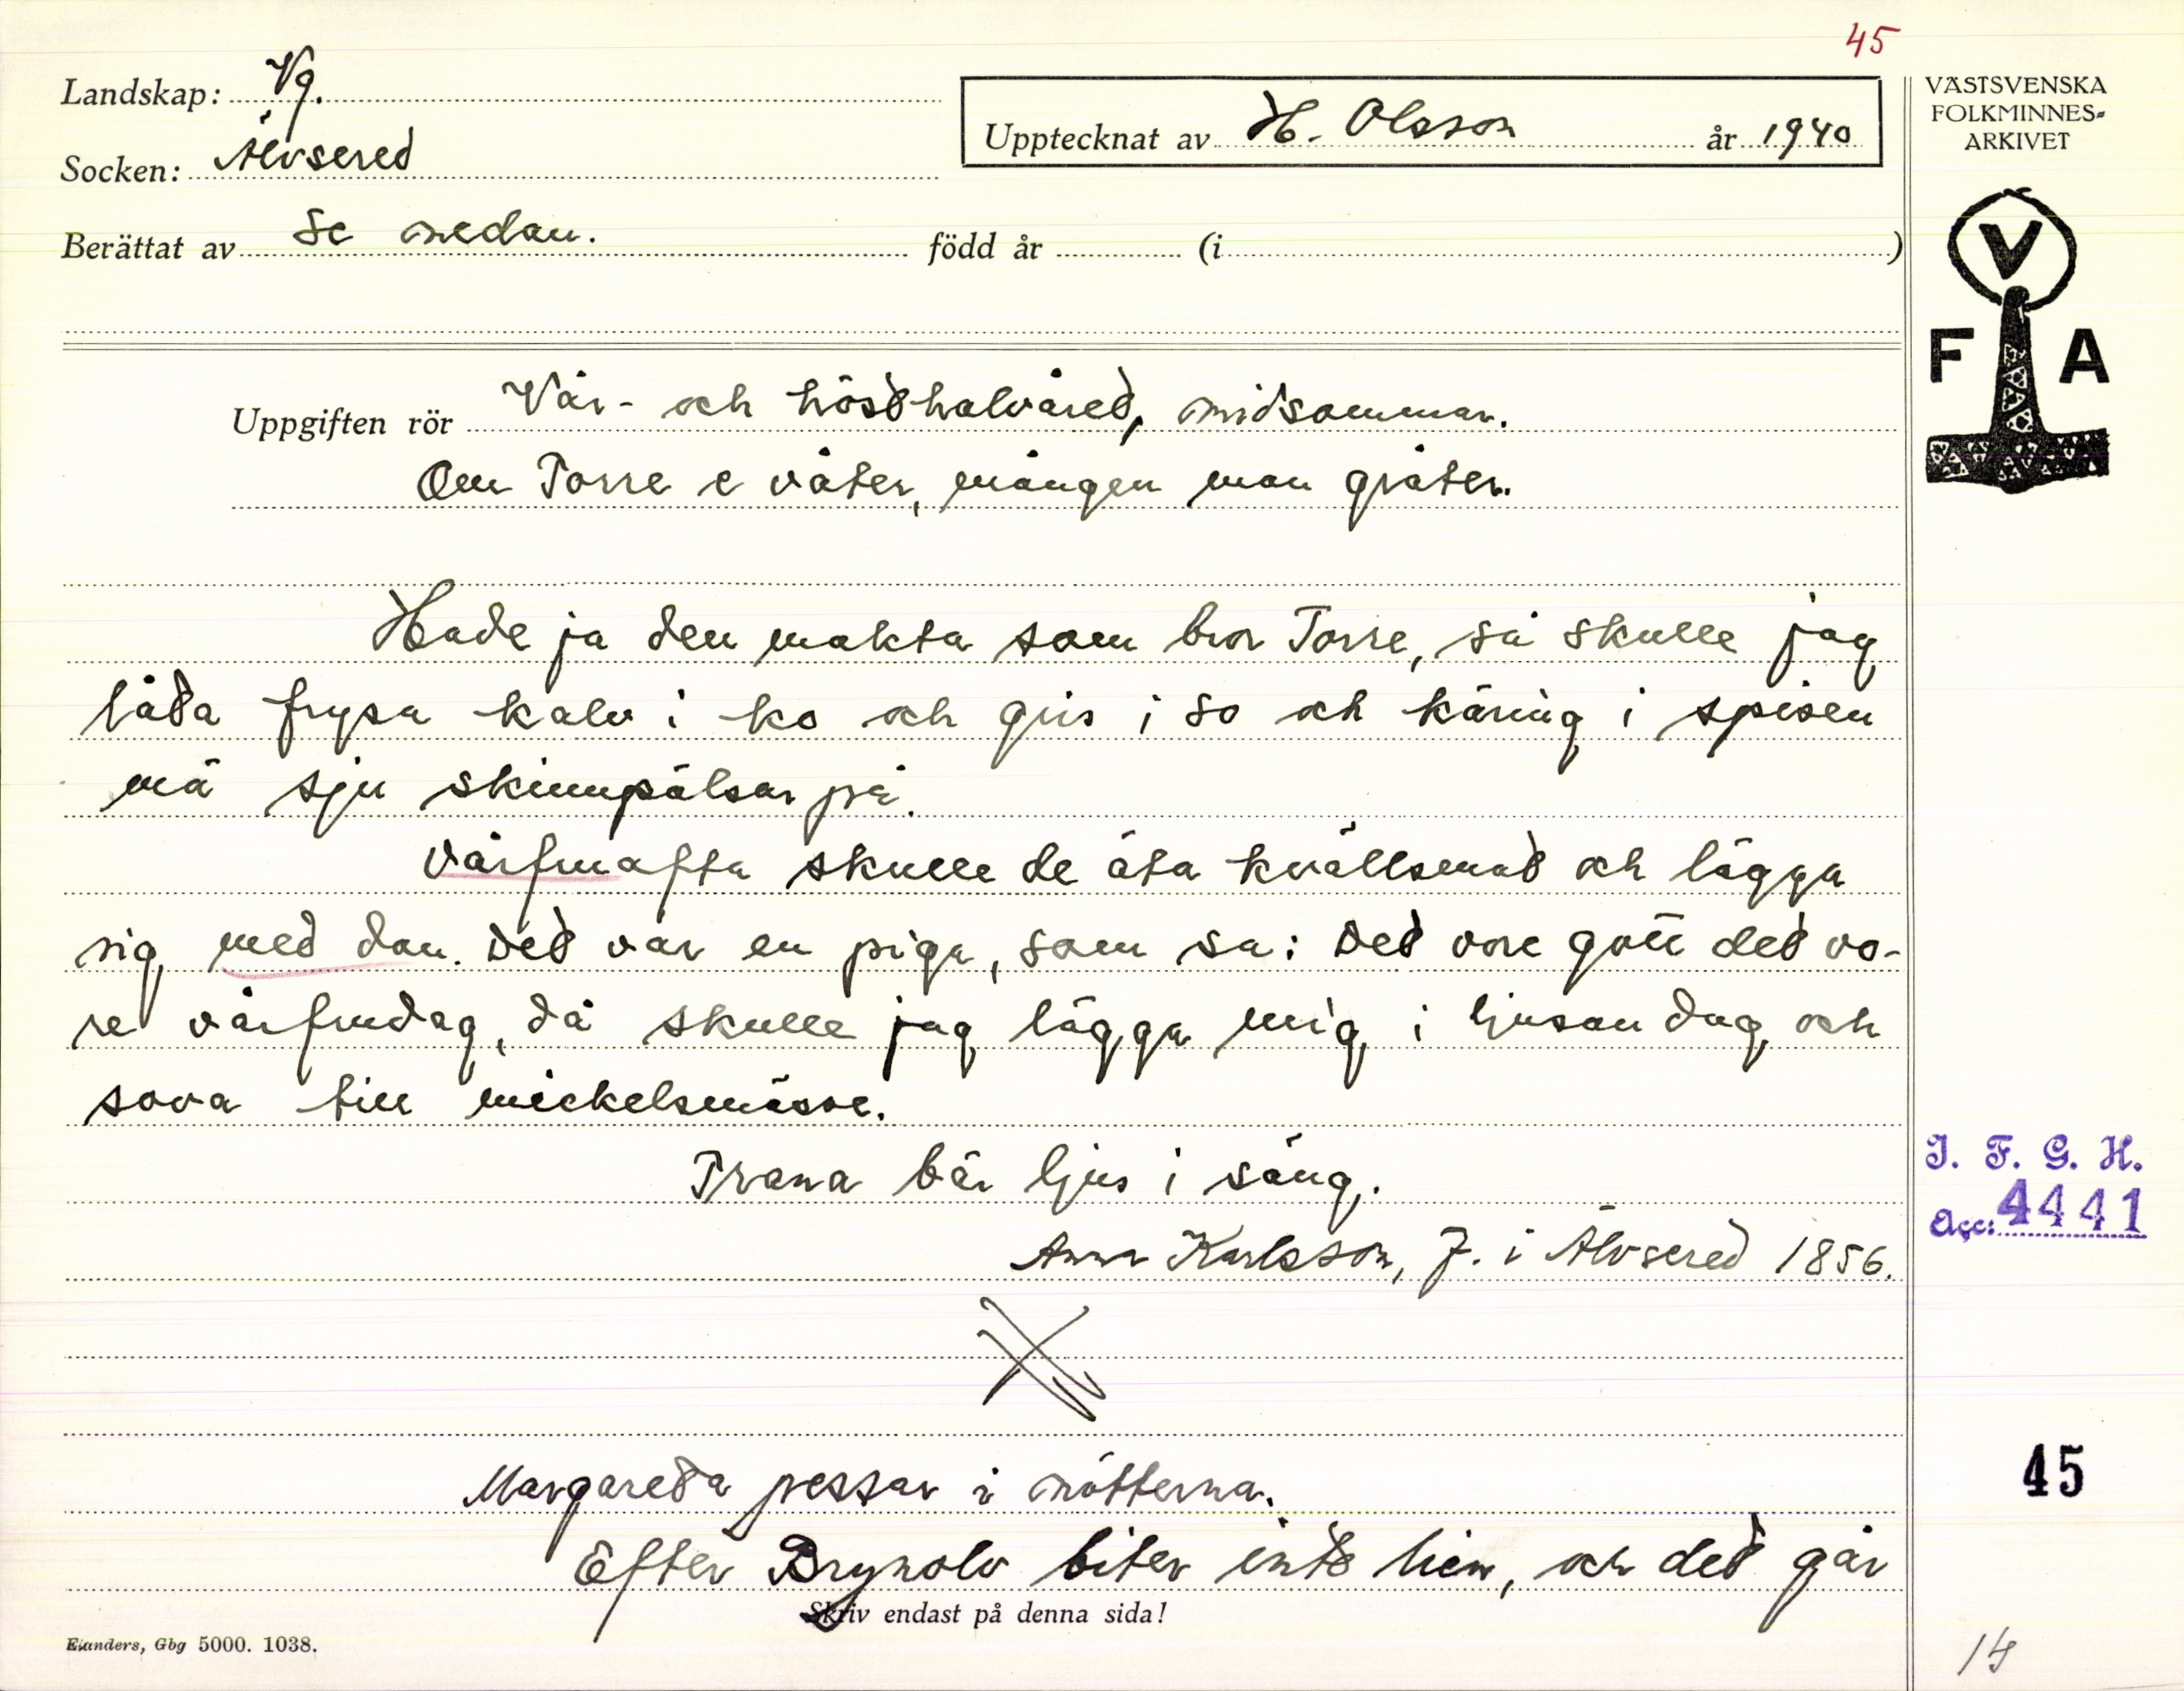 45
Landskap: Vg.
Socken: Älvsered
Upptecknat av H. Olsson år 1940
Berättat av Se nedan. född år (i )
VÄSTSVENSKA
FOLKMINNES-
ARKIVET
V
F A
Uppgiften rör Vår- och hösthalvåret, midsommar.
Om Torre e våter, mången man gråter.
Hade ja den makta som bror Torre, så skulle jag
låta frysa kalv i ko och gris i so och käring i spisen
mä sju skinnpälsar på.
Vårfruafta skulle de äta kvällsmat och lägga
sig med dan. Det var en piga, som sa: Det vore gott det vo-
re vårfrudag, då skulle jag lägga mig i ljusan dag och
sova till mickelsmässe.
Trana bär ljus i säng.
Anna Karlsson, f. i Älvsered 1856.
Margareta pessar i nötterna.
Efter Brynolv biter inte lien, och det går
Skriv endast på denna sida!
Elanders, Gbg 5000. 1038.
I. F. G. H.
Acc: 4441
45